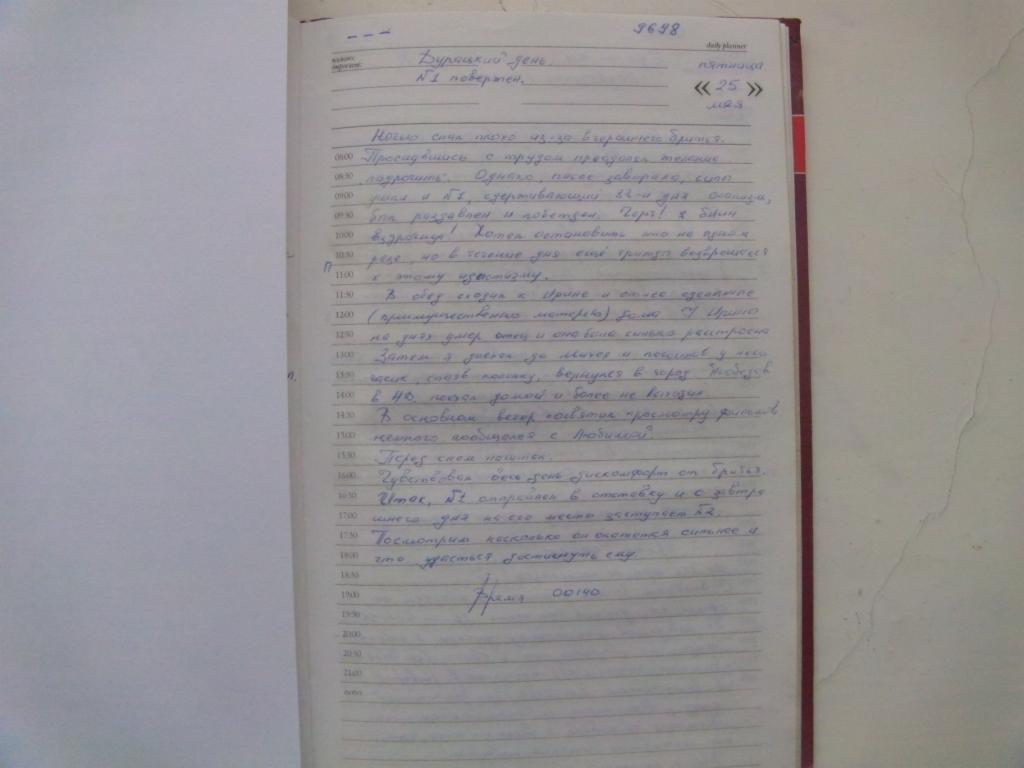 --- 9698
важное important: daily planner
Дурацкий день.
№1 повержен.
пятница
« 25 »
мая
Ночью спал плохо из-за вчерашнего бритья.
08:00 Проснувшись с трудом преодолел желание
08:30 подрочить. Однако, позже завтрака,
09:00 и №1, сдерживающий 32-й дня онанизм,
09:30 был раздавлен и побежден. Чёрт! Я блин
10:00 вздрочнул! Хотел остановить это на одном
10:30 разе, но в течение дня ещё трижды возвращался
П
11:00 к этому идиотизму.
11:30 В обед сходил к Ирине и отнёс
12:00 (преимущественно материю) дома. У Ирины
12:30 на днях умер отец и она была сильно расстроена
13:00 Затем я доехал до и погостив у него
п.
13:30 часик, спаяв колонку, вернулся в город.
14:00 в поехал домой и более не выходил.
14:30 В основном вечер посвятил просмотру фильмов,
15:00 немного пообщался с Любимой.
15:30 Перед сном
16:00 Чувствовал весь день дискомфорт от бритья.
16:30 Итак, №1 отправлен в отставку и с завтра
17:00 шнего дня на его место заступает №2.
17:30 Посмотрим насколько он окажется сильнее и
18:00 что удасться достигнуть ему.
18:30
19:00 Время 00:40
19:30
20:00
20:30
21:00
notes